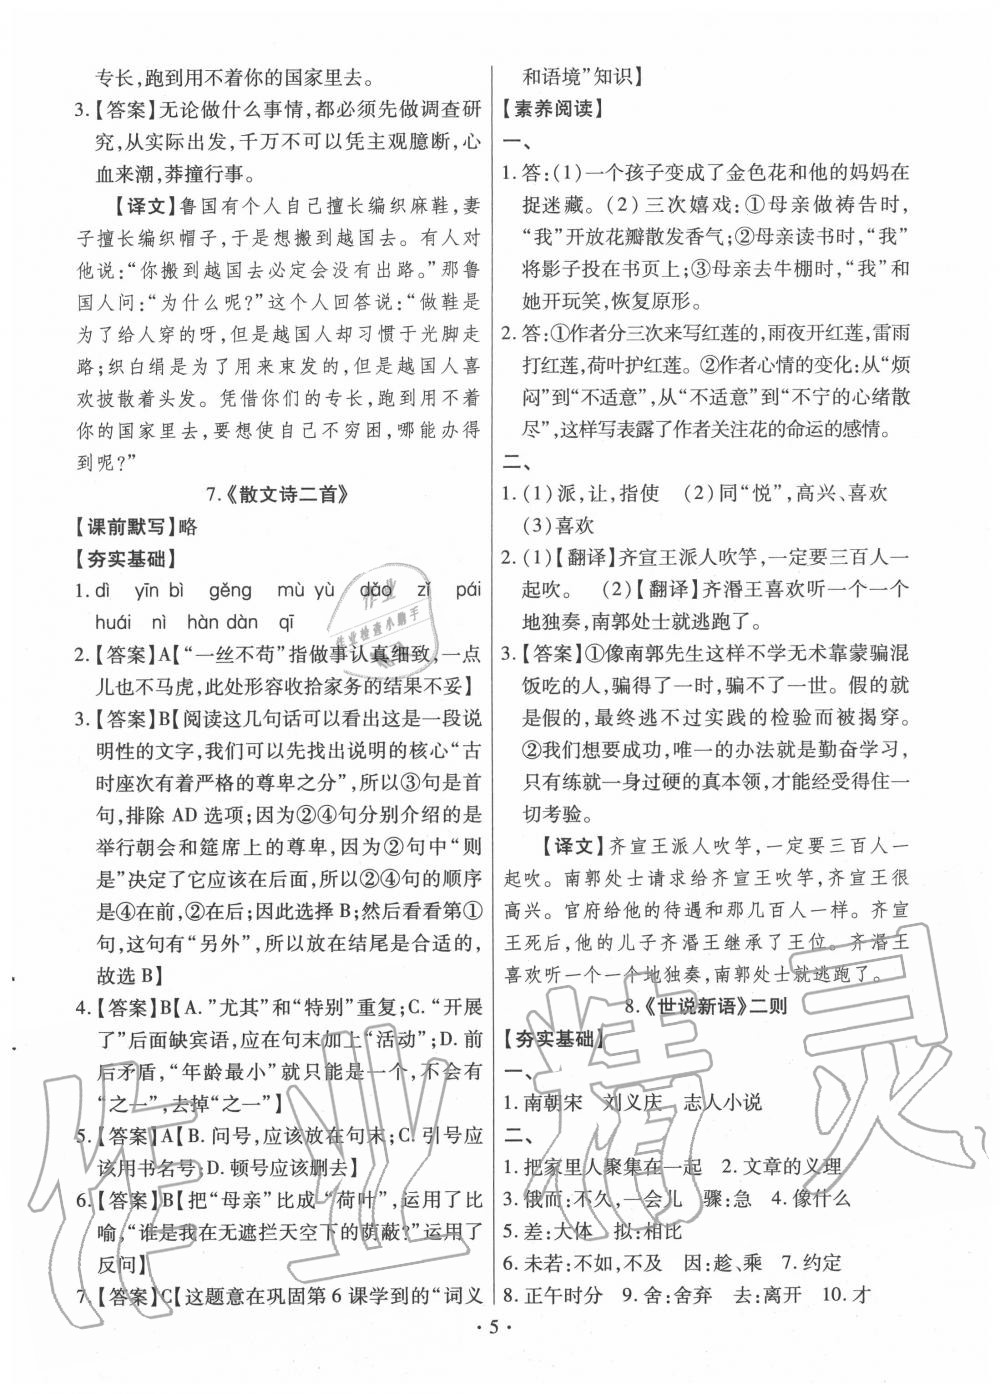 专长,跑到用不着你的国家里去。
3.【答案】无论做什么事情,都必须先做调查研
究,从实际出发,千万不可以凭主观臆断,心
血来潮,莽撞行事。
【译文】鲁国有个人自己擅长编织麻鞋,妻
子擅长编织帽子,于是想搬到越国去。有人对
他说:“你搬到越国去必定会没有出路。”那鲁
国人问:“为什么呢?”这个人回答说:“做鞋是
为了给人穿的呀,但是越国人却习惯于光脚走
路;织白绢是为了用来束发的,但是越国人喜
欢披散着头发。凭借你们的专长,跑到用不着
你的国家里去,要想使自己不穷困,哪能办得
得到呢?”
7.《散文诗二首》
【课前默写】略
【夯实基础】
1. dì yīn bì gěng mù yù dǎo zǐ pái
huái nì hàn dàn qī
2.【答案】A【“一丝不苟”指做事认真细致,一点
儿也不马虎,此处形容收拾家务的结果不妥】
3.【答案】B【阅读这几句话可以看出这是一段说
明性的文字,我们可以先找出说明的核心“古
时座次有着严格的尊卑之分”,所以③句是首
句,排除 AD 选项;②④句分别介绍的是
举行朝会和筵席上的尊卑,因为②句中“则
是”决定了它应该在后面,所以②④句的顺序
是④在前,②在后;因此选择 B;然后看看第①
句,这句有“另外”,所以放在结尾是合适的,
故选 B】
4.【答案】B【A.”尤其”和“特别”重复;C.“开展
了”后面缺宾语,应在句末加上“活动”;D. 前
后矛盾,“年龄最小”就只能是一个,不会有
“之一”,去掉“之一”】
5.【答案】A【B. 问号,应该放在句末;C. 引号应
该用书名号;D. 顿号应该删去】
6.【答案】B【把“母亲”比成“荷叶”,运用了比
喻,“谁是我在无遮拦天空下的荫蔽?”运用了
反问】
7.【答案】C【这题意在巩固第 6 课学到的“词义
和语境”知识】
【素养阅读】
一、
1. 答:(1)一个孩子变成了金色花和他的妈妈在
捉迷藏。(2)三次嬉戏:①母亲做祷告时,
“我”开放花瓣散发香气;②母亲读书时,“我”
将影子投在书页上;③母亲去牛棚时,“我”和
她开玩笑,恢复原形。
2. 答:①作者分三次来写红莲的,雨夜开红莲,雷雨
打红莲,荷叶护红莲。②作者心情的变化:从“烦
闷”到“不适意”,从“不适意”到“不宁的心绪散
尽”,这样写表露了作者关注花的命运的感情。
二、
1.(1)派,让,指使 (2)同“悦”,高兴、喜欢
(3)喜欢
2.(1)【翻译】齐宣王派人吹竽,一定要三百人一
起吹。 (2)【翻译】齐湣王喜欢听一个一个
地独奏,南郭处士就逃跑了。
3.【答案】①像南郭先生这样不学无术靠蒙骗混
饭吃的人,骗得了一时,骗不了一世。假的就
是假的,最终逃不过实践的检验而被揭穿。
②我们想要成功,唯一的办法就是勤奋学习,
只有练就一身过硬的真本领,才能经受得住一
切考验。
【译文】齐宣王派人吹竽,一定要三百人一
起吹。南郭处士请求给齐宣王吹竽,齐宣王很
高兴。官府给他的待遇和那几百人一样。齐宣
王死后,他的儿子齐湣王继承了王位。齐湣王
喜喜欢听一个一个地独奏,南郭处士就逃跑了。
8.《世说新语》二则
【夯实基础】
一、
1. 南朝宋 刘义庆 志人小说
二、
1. 把家里人聚集在一起 2. 文章的义理
3. 俄而:不久,一会儿 骤:急 4. 像什么
5. 差:大体 拟:相比
6. 未若:不如,不及 因:趁、乘 7. 约定
8. 正午时分 9. 舍:舍弃 去:离开 10. 才
· 5 ·
作业
作业检查小助手
作业精灵